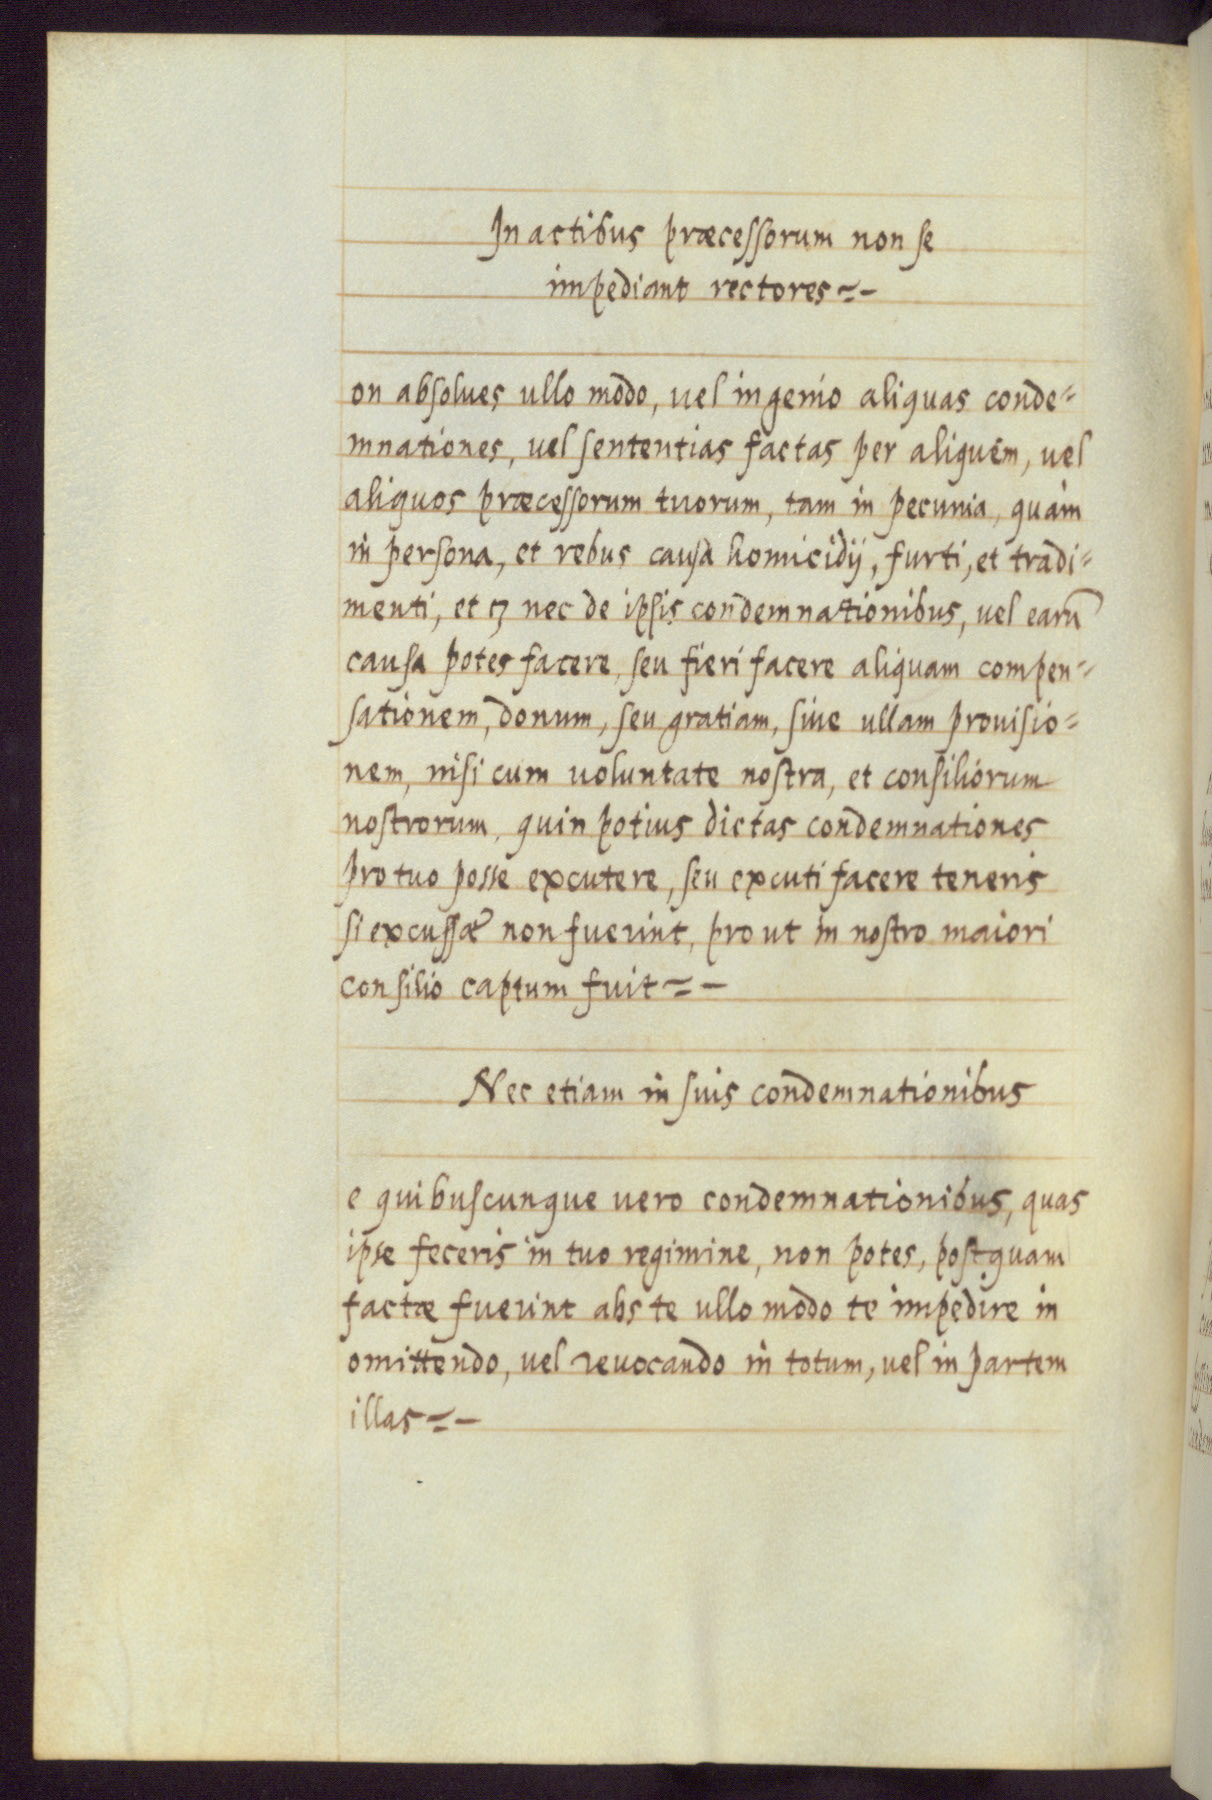 In actibus præcessorum non se
impediant rectores =-
on absolues ullo modo, uel ingenio aliquas conde=
mnationes, uel sententias factas per aliquem, uel
aliquos præcessorum tuorum, tam in pecunia, quam
in persona, et rebus causa homicidij, furti, et tradi=
menti, et nec de ipsis condemnationibus, uel earū
causa potes facere, seu fieri facere aliquam compen=
sationem, donum, seu gratiam, siue ullam prouisio=
nem, nisi cum uoluntate nostra, et consiliorum
nostrorum, quin potius dictas condemnationes
pro tuo posse excutere, seu excuti facere teneris
si excussæ non fuerint, pro ut in nostro maiori
consilio captum fuit =-
Nec etiam in suis condemnationibus
e quibuscunque uero condemnationibus, quas
ipse feceris in tuo regimine, non potes, postquam
factæ fuerint abs te ullo modo te impedire in
omittendo, uel reuocando in totum, uel in partem
illas =-